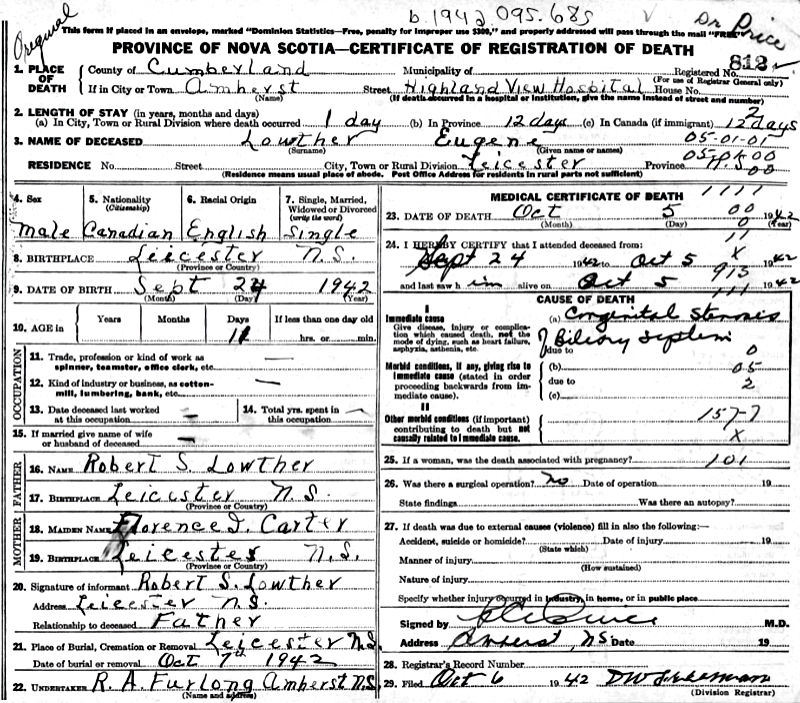 Original
b.1942.095.685
Dr Price
This form if placed in an envelope, marked "Dominion Statistics—Free, penalty for improper use $300," and properly addressed will pass through the mail "FREE"
PROVINCE OF NOVA SCOTIA—CERTIFICATE OF REGISTRATION OF DEATH
1. PLACE OF DEATH County of Cumberland Municipality of Registered No. 812
(For use of Registrar General only)
If in City or Town Amherst Street Highland View Hospital House No.
(Name) (If death occurred in a hospital or institution, give the name instead of street and number)
2. LENGTH OF STAY (in years, months and days)
(a) In City, Town or Rural Division where death occurred 1 day (b) In Province 12 days (c) In Canada (if immigrant) 12 days
2
3. NAME OF DECEASED Lowther Eugene 05-01-01
(Surname) (Given name or names)
05-01-00
RESIDENCE No. Street City, Town or Rural Division Leicester Province N.S.
00
(Residence means usual place of abode. Post Office Address for residents in rural parts not sufficient)
4. Sex
Male
5. Nationality
(Citizenship)
Canadian
6. Racial Origin
English
7. Single, Married, Widowed or Divorced
(write the word)
Single
8. BIRTHPLACE Leicester N.S.
(Province or Country)
9. DATE OF BIRTH Sept 24 1942
(Month) (Day) (Year)
10. AGE in Years Months Days If less than one day old
11 hrs. or min.
OCCUPATION
11. Trade, profession or kind of work as spinner, teamster, office clerk, etc. —
12. Kind of industry or business, as cotton-mill, lumbering, bank, etc. —
13. Date deceased last worked at this occupation — 14. Total yrs. spent in this occupation —
15. If married give name of wife or husband of deceased —
FATHER
16. NAME Robert S. Lowther
17. BIRTHPLACE Leicester N.S.
(Province or Country)
MOTHER
18. MAIDEN NAME Florence I. Carter
19. BIRTHPLACE Leicester N.S.
(Province or Country)
20. Signature of informant Robert S. Lowther
Address Leicester N.S.
Relationship to deceased Father
21. Place of Burial, Cremation or Removal Leicester N.S.
Date of burial or removal Oct 7th 1942
22. UNDERTAKER R. A. Furlong Amherst N.S.
(Name and address)
MEDICAL CERTIFICATE OF DEATH
1111
23. DATE OF DEATH Oct 5 00 1942
(Month) (Day) 0 (Year)
24. I HEREBY CERTIFY that I attended deceased from: 11
Sept 24 1942 to Oct 5 X 1942
913
and last saw him alive on Oct 5 1942
111
CAUSE OF DEATH
I
Immediate cause
Give disease, injury or complication which caused death, not the mode of dying, such as heart failure, asphyxia, asthenia, etc.
(a) Congenital Stenosis
of Biliary System
due to 0
Morbid conditions, if any, giving rise to immediate cause (stated in order proceeding backwards from immediate cause).
(b) 05
due to 2
(c)
II
Other morbid conditions (if important) contributing to death but not causally related to immediate cause.
157-7
X
25. If a woman, was the death associated with pregnancy? 101
26. Was there a surgical operation? no Date of operation 19
State findings Was there an autopsy?
27. If death was due to external causes (violence) fill in also the following:—
Accident, suicide or homicide? Date of injury 19
(State which)
Manner of injury
(How sustained)
Nature of injury
Specify whether injury occurred in industry, in home, or in public place
Signed by M.D.
Address Amherst, NS Date 19
28. Registrar's Record Number
29. Filed Oct 6 1942
(Division Registrar)